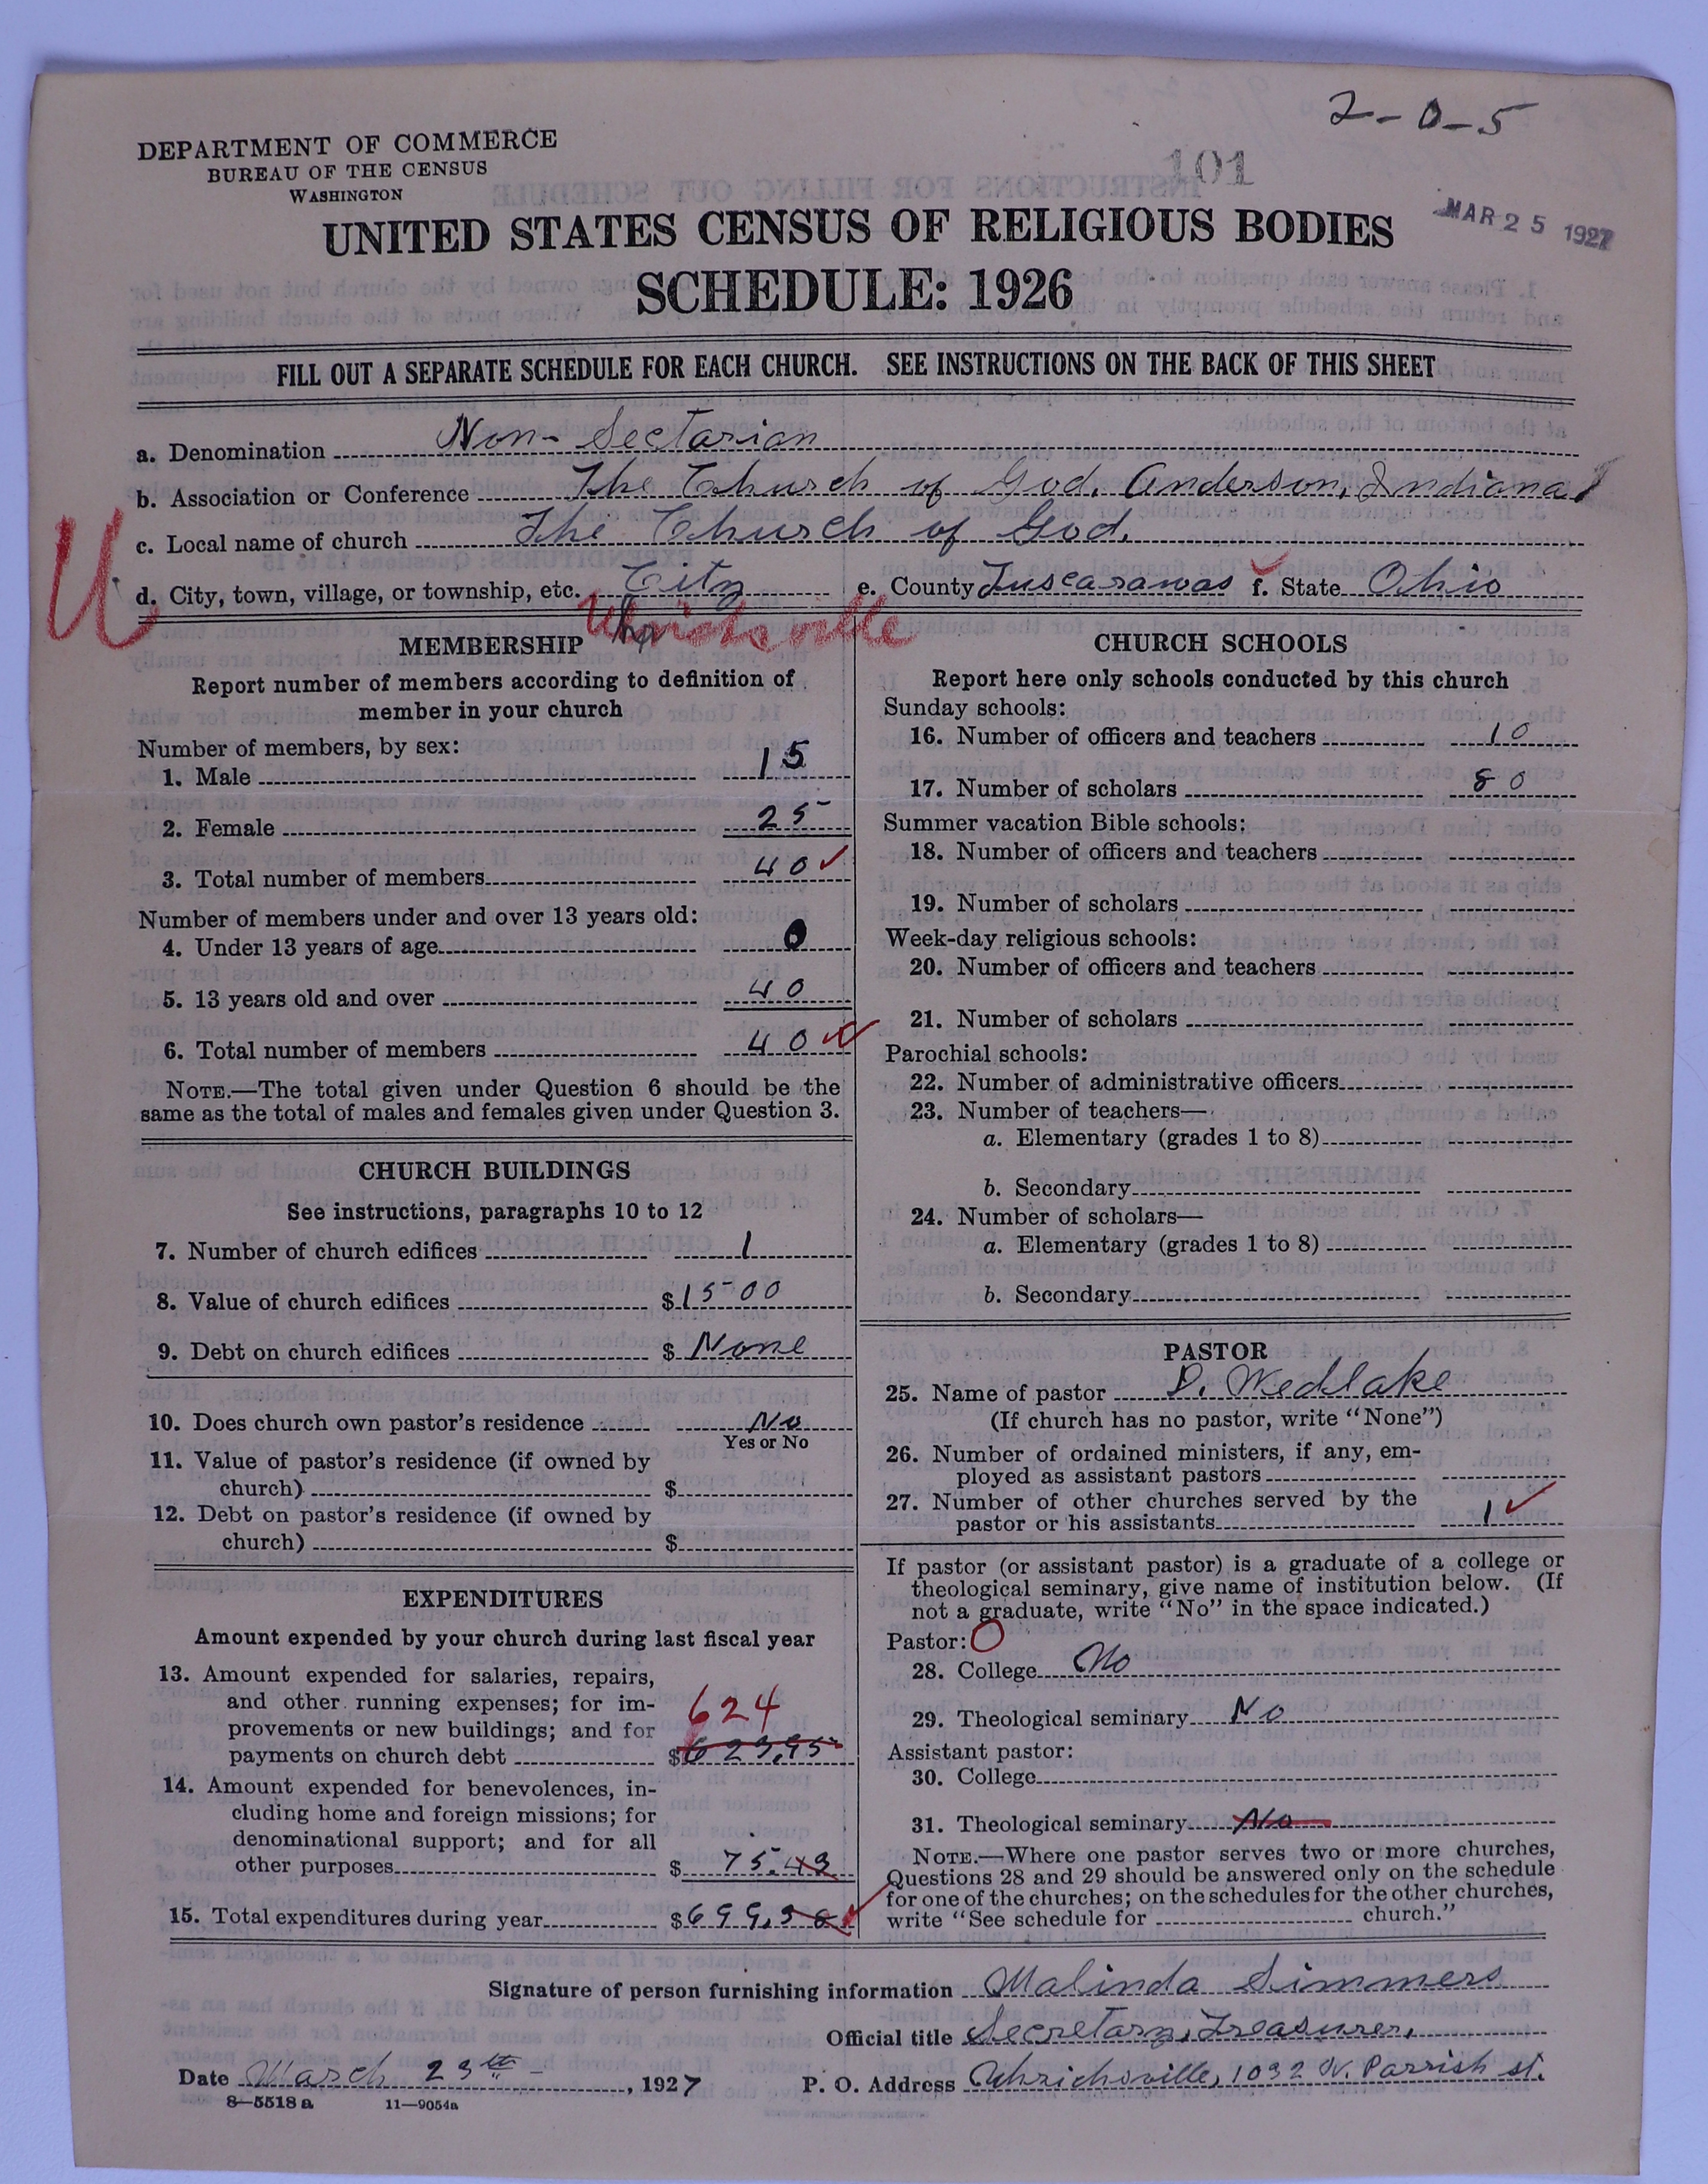 2-0-5
101
DEPARTMENT OF COMMERCE
BUREAU OF THE CENSUS
WASHINGTON
MAR 25 1927
UNITED STATES CENSUS OF RELIGIOUS BODIES
SCHEDULE: 1926
FILL OUT A SEPARATE SCHEDULE FOR EACH CHURCH. SEE INSTRUCTIONS ON THE BACK OF THIS SHEET
a. Denomination Non-Sectarian
b. Association or Conference The Church of God, Anderson, Indiana
c. Local name of church The Church of God.
U
d. City, town, village, or township, etc. City e. County Tuscarawas f. State Ohio
Uhrichsville
MEMBERSHIP
Report number of members according to definition of
member in your church
Number of members, by sex:
1. Male 15
2. Female 25
3. Total number of members 40 ✓
Number of members under and over 13 years old:
4. Under 13 years of age 0
5. 13 years old and over 40
6. Total number of members 40
NOTE.—The total given under Question 6 should be the
same as the total of males and females given under Question 3.
CHURCH BUILDINGS
See instructions, paragraphs 10 to 12
7. Number of church edifices 1
8. Value of church edifices $1500
9. Debt on church edifices $ None
10. Does church own pastor's residence No
Yes or No
11. Value of pastor's residence (if owned by
church) $
12. Debt on pastor's residence (if owned by
church) $
EXPENDITURES
Amount expended by your church during last fiscal year
13. Amount expended for salaries, repairs,
and other running expenses; for im-
provements or new buildings; and for
624
payments on church debt $623.95
14. Amount expended for benevolences, in-
cluding home and foreign missions; for
denominational support; and for all
other purposes $ 75.43
15. Total expenditures during year $699.38
CHURCH SCHOOLS
Report here only schools conducted by this church
Sunday schools:
16. Number of officers and teachers 10
17. Number of scholars 80
Summer vacation Bible schools:
18. Number of officers and teachers
19. Number of scholars
Week-day religious schools:
20. Number of officers and teachers
21. Number of scholars
Parochial schools:
22. Number of administrative officers
23. Number of teachers—
a. Elementary (grades 1 to 8)
b. Secondary
24. Number of scholars—
a. Elementary (grades 1 to 8)
b. Secondary
PASTOR
25. Name of pastor D. Wedlake
(If church has no pastor, write "None")
26. Number of ordained ministers, if any, em-
ployed as assistant pastors
27. Number of other churches served by the
pastor or his assistants 1 ✓
If pastor (or assistant pastor) is a graduate of a college or
theological seminary, give name of institution below. (If
not a graduate, write "No" in the space indicated.)
Pastor: O
28. College No
29. Theological seminary No
Assistant pastor:
30. College
31. Theological seminary No
NOTE.—Where one pastor serves two or more churches,
Questions 28 and 29 should be answered only on the schedule
for one of the churches; on the schedules for the other churches,
write "See schedule for church."
Signature of person furnishing information Malinda Simmers
Official title Secretary, Treasurer.
Date March 23th, 1927 P. O. Address Uhrichsville, 1032 N. Parrish st.
8—5518a 11—9054a